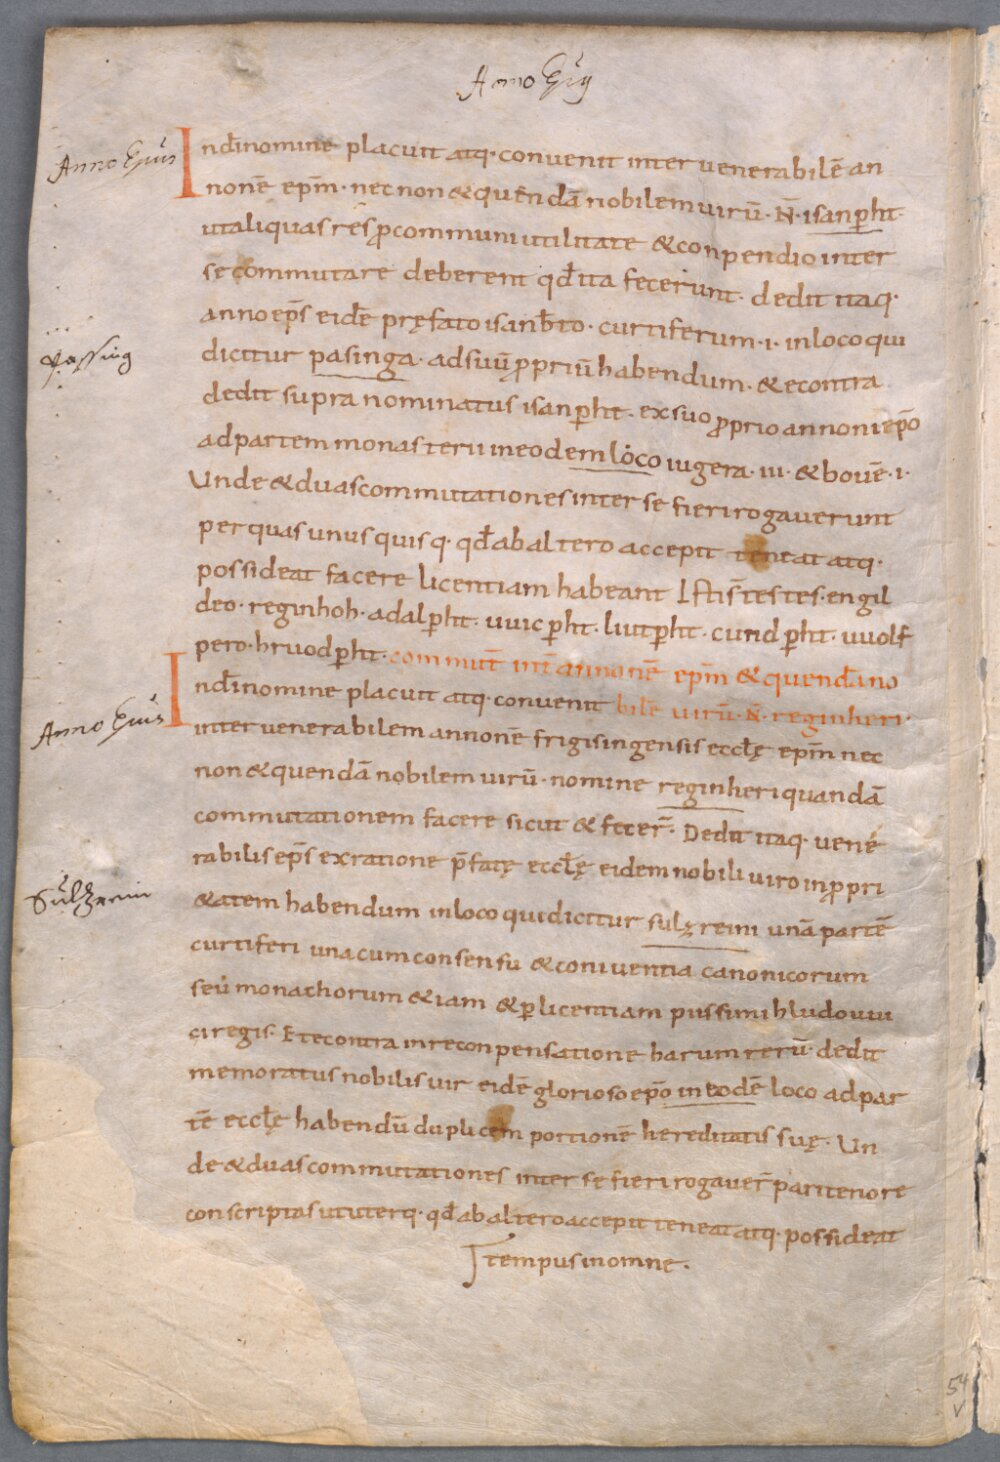 Anno Epūs
Anno Epūs
Ind̄inomine placuit atq· convenit inter venerabilē an
nonē epm̄· nec non & quendā nobilem virū· N̄· isanp̱ht·
ut aliquas res p̱ communi utilitate & conpendio inter
se commutare deberent qđ ita fecerunt· dedit itaq·
anno ep̄s eidē pręfato isanb̄to· curtiferum· i· in loco qui
Passing
dicitur pasinga· ad suū ꝓpriū habendum· & econtra
dedit supra nominatus isanp̱ht· ex suo ꝓprio annoni ep̄o
ad partem monasterii in eodem loco iugera· iii· & bovē· i·
Unde & duas commutationes inter se fieri rogaverunt
per quas unus quis q· qđ ab altero accepit teneat atq·
possideat facere licentiam habeant Isti s̄ testes· engil
deo· reginhoh· adalp̱ht· vvicp̱ht· liutp̱ht· cundp̱ht· vvolf
pero· hruodp̱ht· commut̄ int̄ annonē epm̄ & quendā no
Anno Epūs
Ind̄inomine placuit atq· convenit bilē virū· N̄· reginheri·
inter venerabilem annonē frigisingensis eccłę epm̄ nec
non & quendā nobilem virū· nomine reginheri quandā
commutationem facere sicut & fecer̄· Dedit itaq· vene
rabilis ep̄s ex ratione p̄fatę eccłę eidem nobili viro in ꝓpri
Sulzrain
&atem habendum in loco qui dicitur sulzreini unā partē
curtiferi una cum consensu & coniventia canonicorum
seu monachorum &iam & p̱ licentiam piissimi hludouui
ci regis· Et econtra in reconpensatione harum rerū· dedit
memoratus nobilis vir eidē glorioso ep̄o in eodē loco ad par
tē eccłę habendū duplicem portionē hereditatis suę· Un
de & duas commutationes inter se fieri rogaver̄ pari tenore
conscriptas ut uterq· qđ ab altero accepit teneat atq· possideat
tempus in omne·
54
v